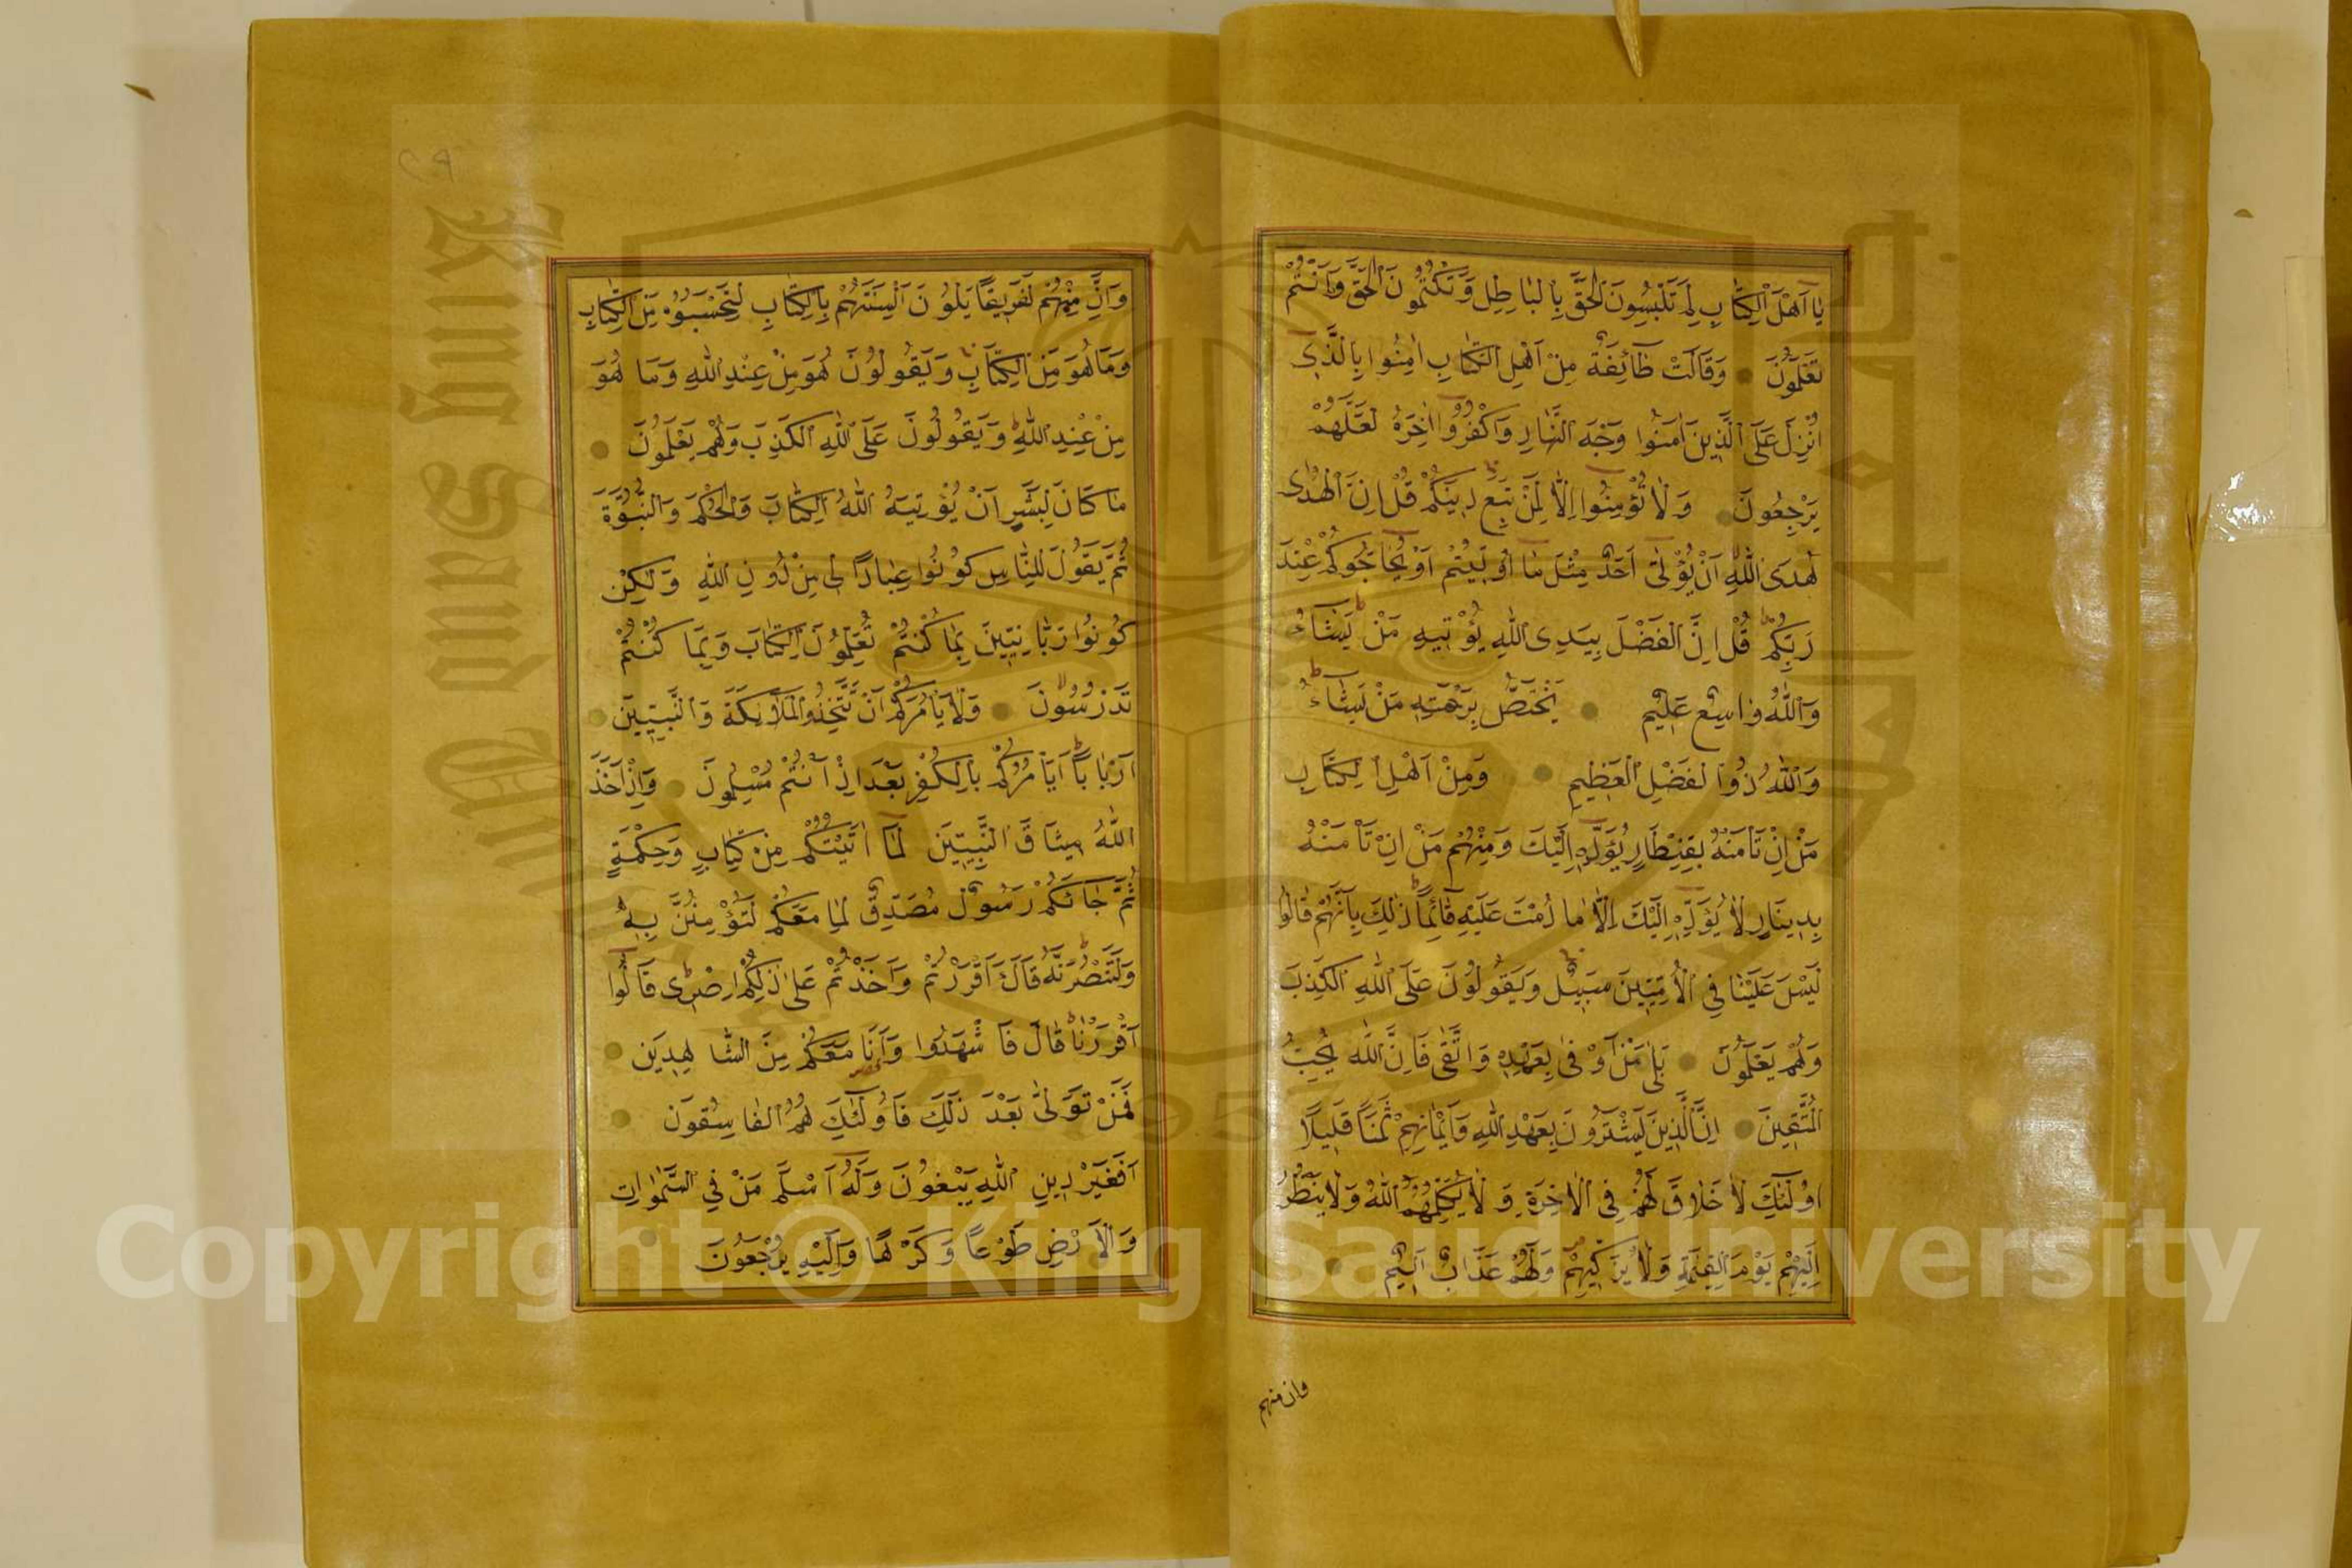 يَا اَهْلَ الْكِتَابِ لِمَ تَلْبِسُونَ الْحَقَّ بِالْبَاطِلِ وَتَكْتُمُونَ الْحَقَّ وَاَنْتُمْ
تَعْلَمُونَ وَقَالَتْ طَائِفَةٌ مِنْ اَهْلِ الْكِتَابِ اٰمِنُوا بِالَّذِى
اُنْزِلَ عَلَى الَّذِينَ اٰمَنُوا وَجْهَ النَّهَارِ وَاكْفُرُوا اٰخِرَهُ لَعَلَّهُمْ
يَرْجِعُونَ وَلَا تُؤْمِنُوا اِلَّا لِمَنْ تَبِعَ دِينَكُمْ قُلْ اِنَّ الْهُدٰى
هُدَى اللّٰهِ اَنْ يُؤْتٰى اَحَدٌ مِثْلَ مَا اُوتِيتُمْ اَوْ يُحَاجُّوكُمْ عِنْدَ
رَبِّكُمْ قُلْ اِنَّ الْفَضْلَ بِيَدِى اللّٰهِ يُؤْتِيهِ مَنْ يَشَاءُ
وَاللّٰهُ وَاسِعٌ عَلِيمٌ يَخْتَصُّ بِرَحْمَتِهِ مَنْ يَشَاءُ
وَاللّٰهُ ذُوا لْفَضْلِ الْعَظِيمِ وَمِنْ اَهْلِ الْكِتَابِ
مَنْ اِنْ تَاْمَنْهُ بِقِنْطَارٍ يُؤَدِّهِ اِلَيْكَ وَمِنْهُمْ مَنْ اِنْ تَاْمَنْهُ
بِدِينَارٍ لَا يُؤَدِّهِ اِلَيْكَ اِلَّا مَا دُمْتَ عَلَيْهِ قَائِمًا ذٰلِكَ بِاَنَّهُمْ قَالُوا
لَيْسَ عَلَيْنَا فِي الْاُمِّيِّينَ سَبِيلٌ وَيَقُولُونَ عَلَى اللّٰهِ الْكَذِبَ
وَهُمْ يَعْلَمُونَ بَلٰى مَنْ اَوْفٰى بِعَهْدِهِ وَاتَّقٰى فَاِنَّ اللّٰهَ يُحِبُّ
الْمُتَّقِينَ اِنَّ الَّذِينَ يَشْتَرُونَ بِعَهْدِ اللّٰهِ وَاَيْمَانِهِمْ ثَمَنًا قَلِيلًا
اُولٰئِكَ لَا خَلَاقَ لَهُمْ فِي الْاٰخِرَةِ وَلَا يُكَلِّمُهُمُ اللّٰهُ وَلَا يَنْظُرُ
اِلَيْهِمْ يَوْمَ الْقِيٰمَةِ وَلَا يُزَكِّيهِمْ وَلَهُمْ عَذَابٌ اَلِيمٌ
وان منهم
وَاِنَّ مِنْهُمْ لَفَرِيقًا يَلْوُنَ اَلْسِنَتَهُمْ بِالْكِتَابِ لِتَحْسَبُوهُ مِنَ الْكِتَابِ
وَمَا هُوَ مِنَ الْكِتَابِ وَيَقُولُونَ هُوَ مِنْ عِنْدِ اللّٰهِ وَمَا هُوَ
مِنْ عِنْدِ اللّٰهِ وَيَقُولُونَ عَلَى اللّٰهِ الْكَذِبَ وَهُمْ يَعْلَمُونَ
مَا كَانَ لِبَشَرٍ اَنْ يُؤْتِيَهُ اللّٰهُ الْكِتَابَ وَالْحُكْمَ وَالنُّبُوَّةَ
ثُمَّ يَقُولَ لِلنَّاسِ كُونُوا عِبَادًا لِى مِنْ دُونِ اللّٰهِ وَلٰكِنْ
كُونُوا رَبَّانِيِّينَ بِمَا كُنْتُمْ تُعَلِّمُونَ الْكِتَابَ وَبِمَا كُنْتُمْ
تَدْرُسُونَ وَلَا يَاْمُرَكُمْ اَنْ تَتَّخِذُوا الْمَلٰئِكَةَ وَالنَّبِيِّينَ
اَرْبَابًا اَيَاْمُرُكُمْ بِالْكُفْرِ بَعْدَ اِذْ اَنْتُمْ مُسْلِمُونَ وَاِذْ اَخَذَ
اللّٰهُ مِيثَاقَ النَّبِيِّينَ لَمَا اٰتَيْتُكُمْ مِنْ كِتَابٍ وَحِكْمَةٍ
ثُمَّ جَائَكُمْ رَسُولٌ مُصَدِّقٌ لِمَا مَعَكُمْ لَتُؤْمِنُنَّ بِهِ
وَلَتَنْصُرُنَّهُ قَالَ ءَاَقْرَرْتُمْ وَاَخَذْتُمْ عَلٰى ذٰلِكُمْ اِصْرِى قَالُوا
اَقْرَرْنَا قَالَ فَاشْهَدُوا وَاَنَا مَعَكُمْ مِنَ الشَّاهِدِينَ
فَمَنْ تَوَلّٰى بَعْدَ ذٰلِكَ فَاُولٰئِكَ هُمُ الْفَاسِقُونَ
اَفَغَيْرَ دِينِ اللّٰهِ يَبْغُونَ وَلَهُ اَسْلَمَ مَنْ فِي السَّمٰوَاتِ
وَالْاَرْضِ طَوْعًا وَكَرْهًا وَاِلَيْهِ يُرْجَعُونَ
Copyright © King Saud University
King Saud University
1957